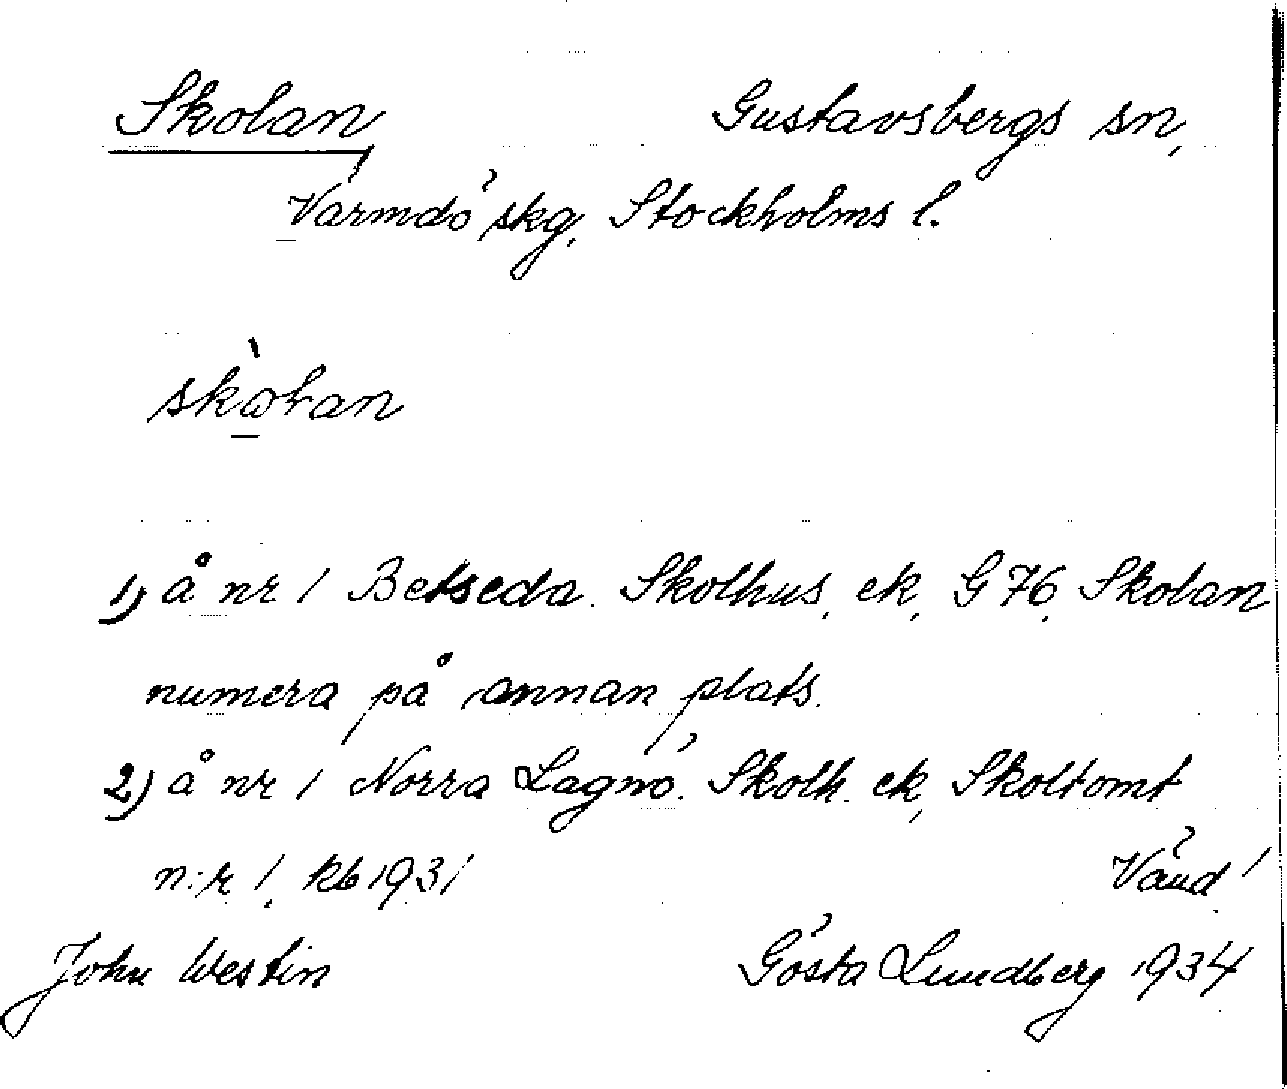 Skolan Gustavsbergs sn,
Värmdö skg, Stockholms l.
skòlan
1) å nr 1 Betseda. Skolhus, ek, G 76, Skolan
numera på annan plats.
2) å nr 1 Norra Lagnö. Skolh. ek, Skoltomt
n:r 1, kb 1931 Vänd!
John Westin Gösta Lundberg 1934